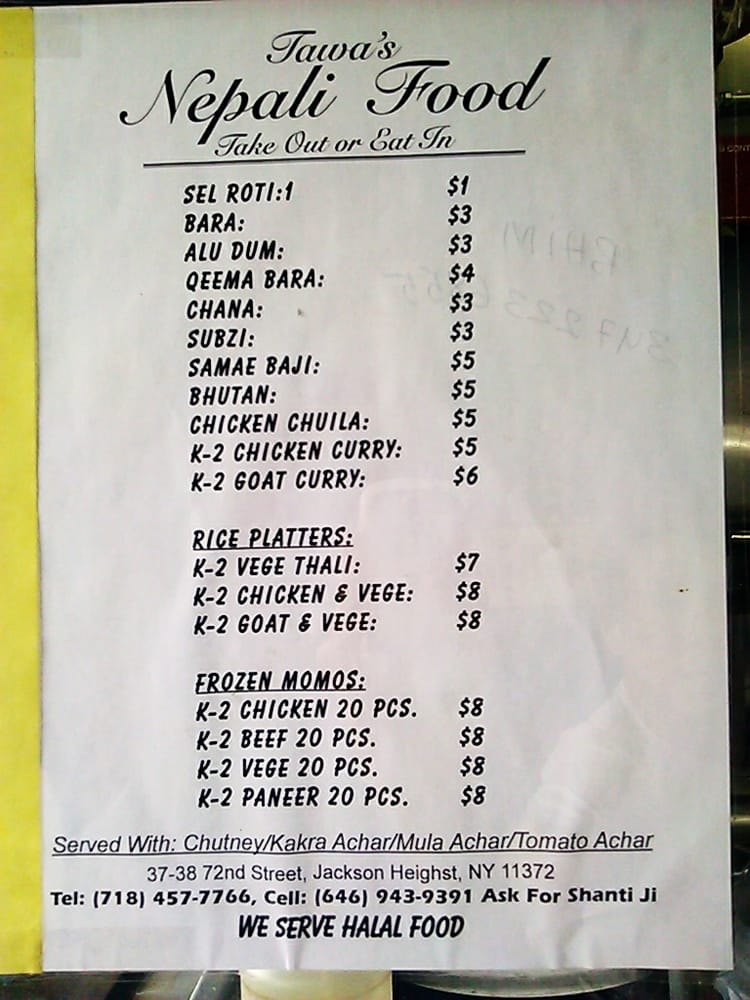 Tawa's
Nepali Food
Take Out or Eat In
SEL ROTI:1 $1
BARA: $3
ALU DUM: $3
QEEMA BARA: $4
CHANA: $3
SUBZI: $3
SAMAE BAJI: $5
BHUTAN: $5
CHICKEN CHUILA: $5
K-2 CHICKEN CURRY: $5
K-2 GOAT CURRY: $6
RICE PLATTERS:
K-2 VEGE THALI: $7
K-2 CHICKEN & VEGE: $8
K-2 GOAT & VEGE: $8
FROZEN MOMOS:
K-2 CHICKEN 20 PCS. $8
K-2 BEEF 20 PCS. $8
K-2 VEGE 20 PCS. $8
K-2 PANEER 20 PCS. $8
Served With: Chutney/Kakra Achar/Mula Achar/Tomato Achar
37-38 72nd Street, Jackson Heighst, NY 11372
Tel: (718) 457-7766, Cell: (646) 943-9391 Ask For Shanti Ji
WE SERVE HALAL FOOD